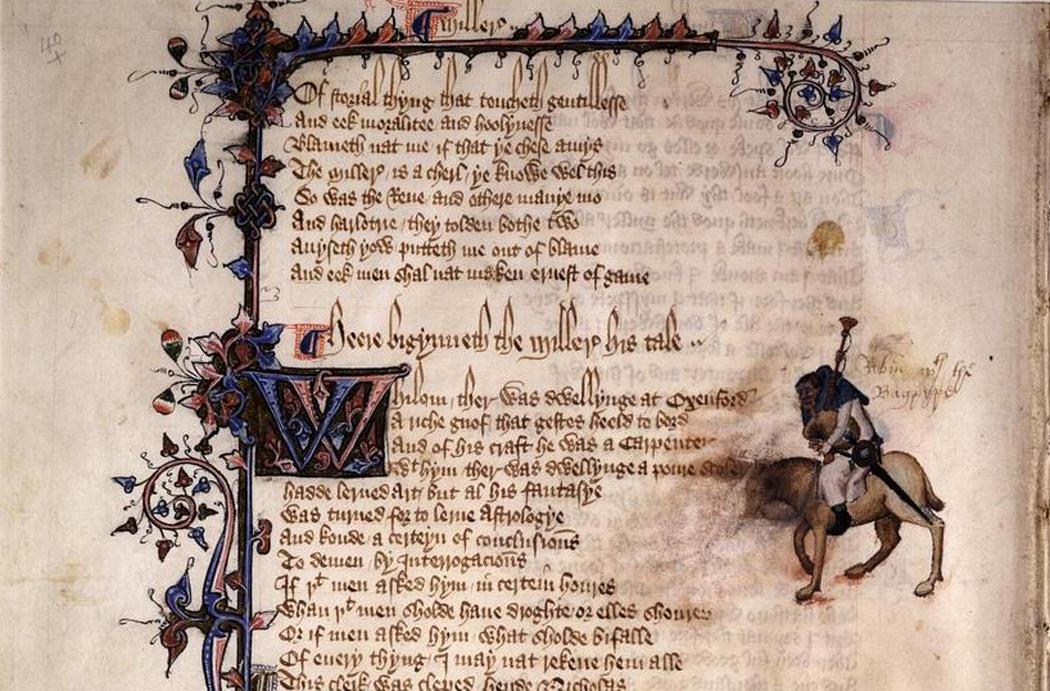 Miller
Of storial thyng that toucheth gentillesse
And eek moralitee and hoolynesse
Blameth nat me if that ye chese amys
The Miller is a cherl ye knowe wel this
So was the Reue and othere manye mo
And harlotrie they tolden bothe two
Auyseth yow putteth me out of blame
And eek men shal nat maken ernest of game
Heere bigynneth the Miller his tale
Whilom ther was dwellynge at Oxenford
A riche gnof that gestes heeld to bord
And of his craft he was a Carpenter
Wt hym ther was dwellynge a poure Scoler
Hadde lerned Art but al his fantasye
Was turned for to lerne Astrologye
And koude a certeyn of conclusions
To demen by Interrogacions
If þt men asked hym in certein houres
Whan þt men sholde haue droghte or elles shoures
Or if men asked hym what sholde bifalle
Of euery thyng I may nat rekene hem alle
This clerk was cleped hende Nicholas
Robin wt the
Bagpype